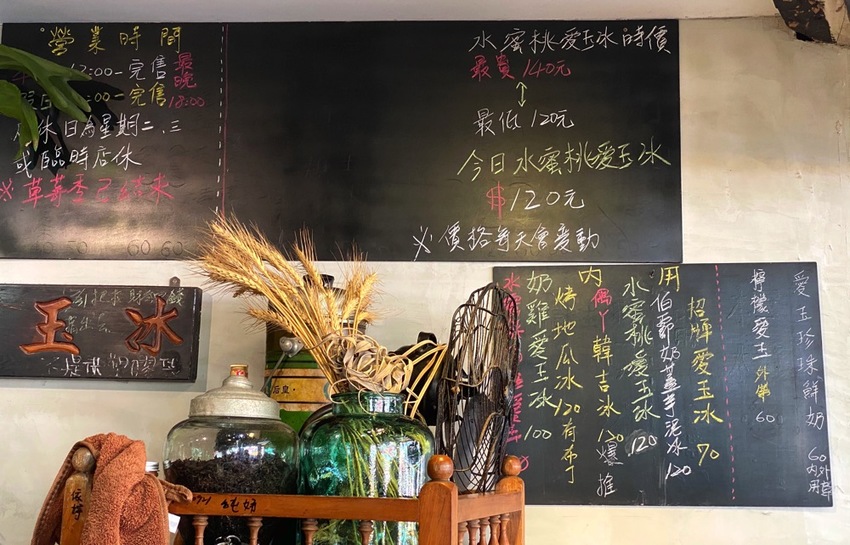 營業時間
12:00-完售
:00-完售
最晚
18:00
休日為星期二、三
或臨時店休
※草莓季已結束
60 60
水蜜桃愛玉冰時價
最貴140元
↕
最低120元
今日水蜜桃愛玉冰
$120元
※價格每天會變動
玉冰
愛玉珍珠鮮奶 60 內外用拿
檸檬愛玉 外帶 60
內用
招牌愛玉冰 70
伯爵奶蓋芋泥冰 120
水蜜桃愛玉冰 120
偶ㄚ韓吉冰 120 爆推
烤地瓜冰 120 有布丁
奶雞愛玉冰 100
純奶